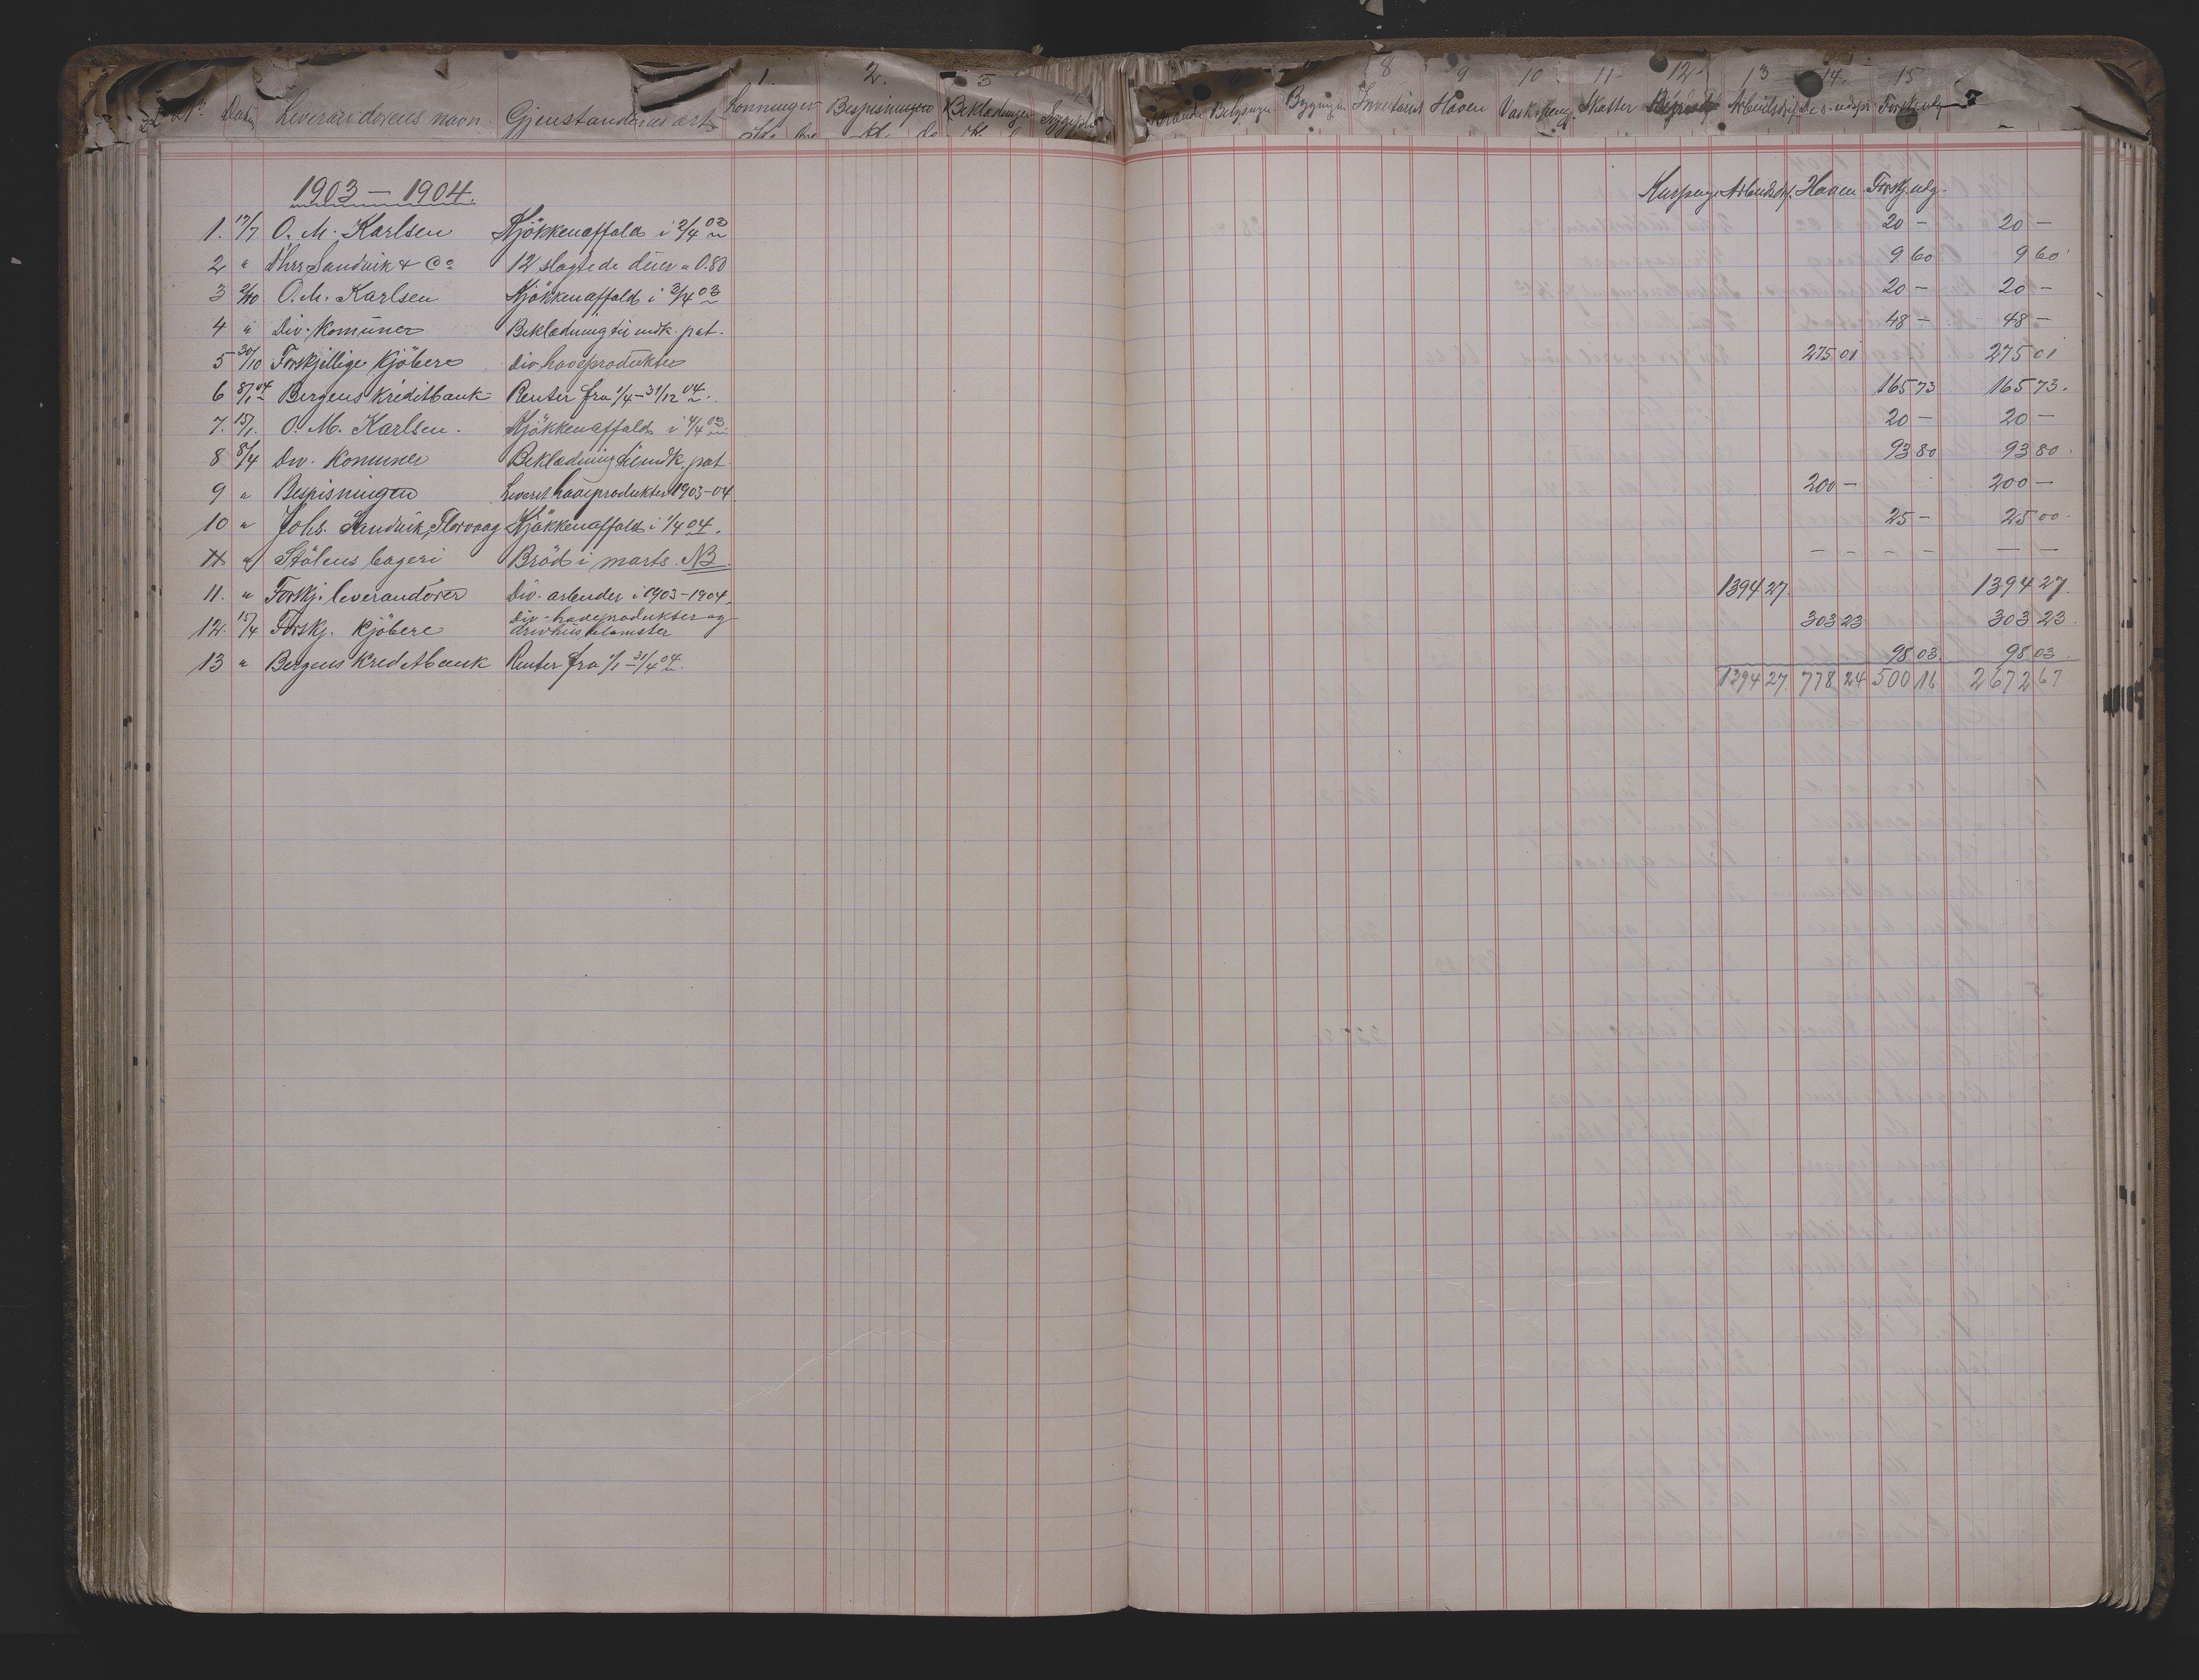 1. 2. 3 8 9 10 11 12 13 14. 15
No. Dato Leverandørens navn. Gjenstandens art Lønninger Bespisningen Beklædningen Sygeple Brænde Belysningen Bygningen Inventariet Haven Vask Skatter Arbeidsdrif Forskj. udg
1903 — 1904. Kurpenge Arbeidsdr. Haven Forskj. udg.
1. 17/7 O. M. Karlsen Kjökkenaffald i 2/4 03 20 — 20 —
2 " D'hrr Sandvik & Co 12 slagtede duer a 0.80 9 60 9 60
3 2/10 O. M. Karlsen Kjökkenaffald i 3/4 03 20 — 20 —
4 " Div. Komüner Beklædning til indk. pat. 48 — 48 —
5 30/10 Forskjellige Kjöbere Div. haveprodukter 275 01 275 01
6 8/1 04 Bergens Kreditbank Renter fra 1/4 – 31/12 04. 165 73 165 73.
7. 15/1. O. M. Karlsen. Kjökkenaffald i 4/4 03 20 — 20 —
8 8/4 Div. Komuner Beklædning til indk. pat. 93 80 93 80.
9 " Bespisningen Leveret haveprodukter 1903–04 200 — 200 —
10 " Johs. Sandvik, Florvaag Kjökkenaffald i 1/4 04. 25 — 25 00.
11 " Stölens bageri Bröd i marts. NB. — — — — — —
11. " Forskj. leverandörer Div. arbeider i 1903–1904. 1394 27. 1394 27.
12. 15/4 Forskj. Kjöbere Div. haveprodukter og
drivhusblomster 303 23 303 23.
13 " Bergens Kreditbank Renter fra 1/1 – 31/4 04. 98 03. 98 03.
1394 27. 778 24 500 16 2672 67